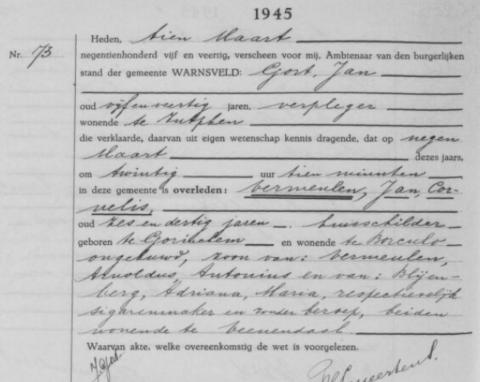 1945
Heden, tien Maart
Nr. 73
negentienhonderd vijf en veertig, verscheen voor mij, Ambtenaar van den burgerlijken
stand der gemeente WARNSVELD: Gort, Jan
oud vijfenveertig jaren, verpleger
wonende te Zutphen
die verklaarde, daarvan uit eigen wetenschap kennis dragende, dat op negen
Maart dezes jaars,
om twintig uur tien minuten
in deze gemeente is overleden: Vermeulen, Jan, Cor-
nelis,
oud zes en dertig jaren, huisschilder
geboren te Gorinchem en wonende te Borculo
ongehuwd, zoon van: Vermeulen,
Arnoldus, Antonius en van: Blijen-
berg, Adriana, Maria, respectievelijk
sigarenmaker en zonder beroep, beiden
wonende te Veenendaal
Waarvan akte, welke overeenkomstig de wet is voorgelezen.